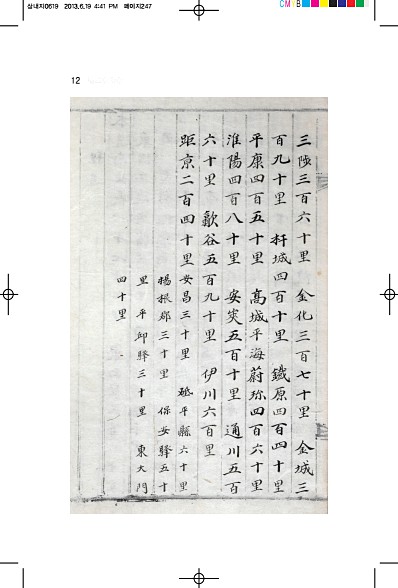 삼내지0619 2013.6.19 4:41 PM 페이지247
CMYB
12
三陟三百六十里 金化三百七十里 金城三
百九十里 杆城四百十里 鐵原四百四十里
平康四百五十里 高城平海蔚珍四百六十里
淮陽四百八十里 安峽五百十里 通川五百
六十里 歙谷五百九十里 伊川六百里
距京二百四十里安昌三十里 砥平縣六十里
楊根郡三十里 保安驛五十
里 平邱驛三十里 東大門
四十里